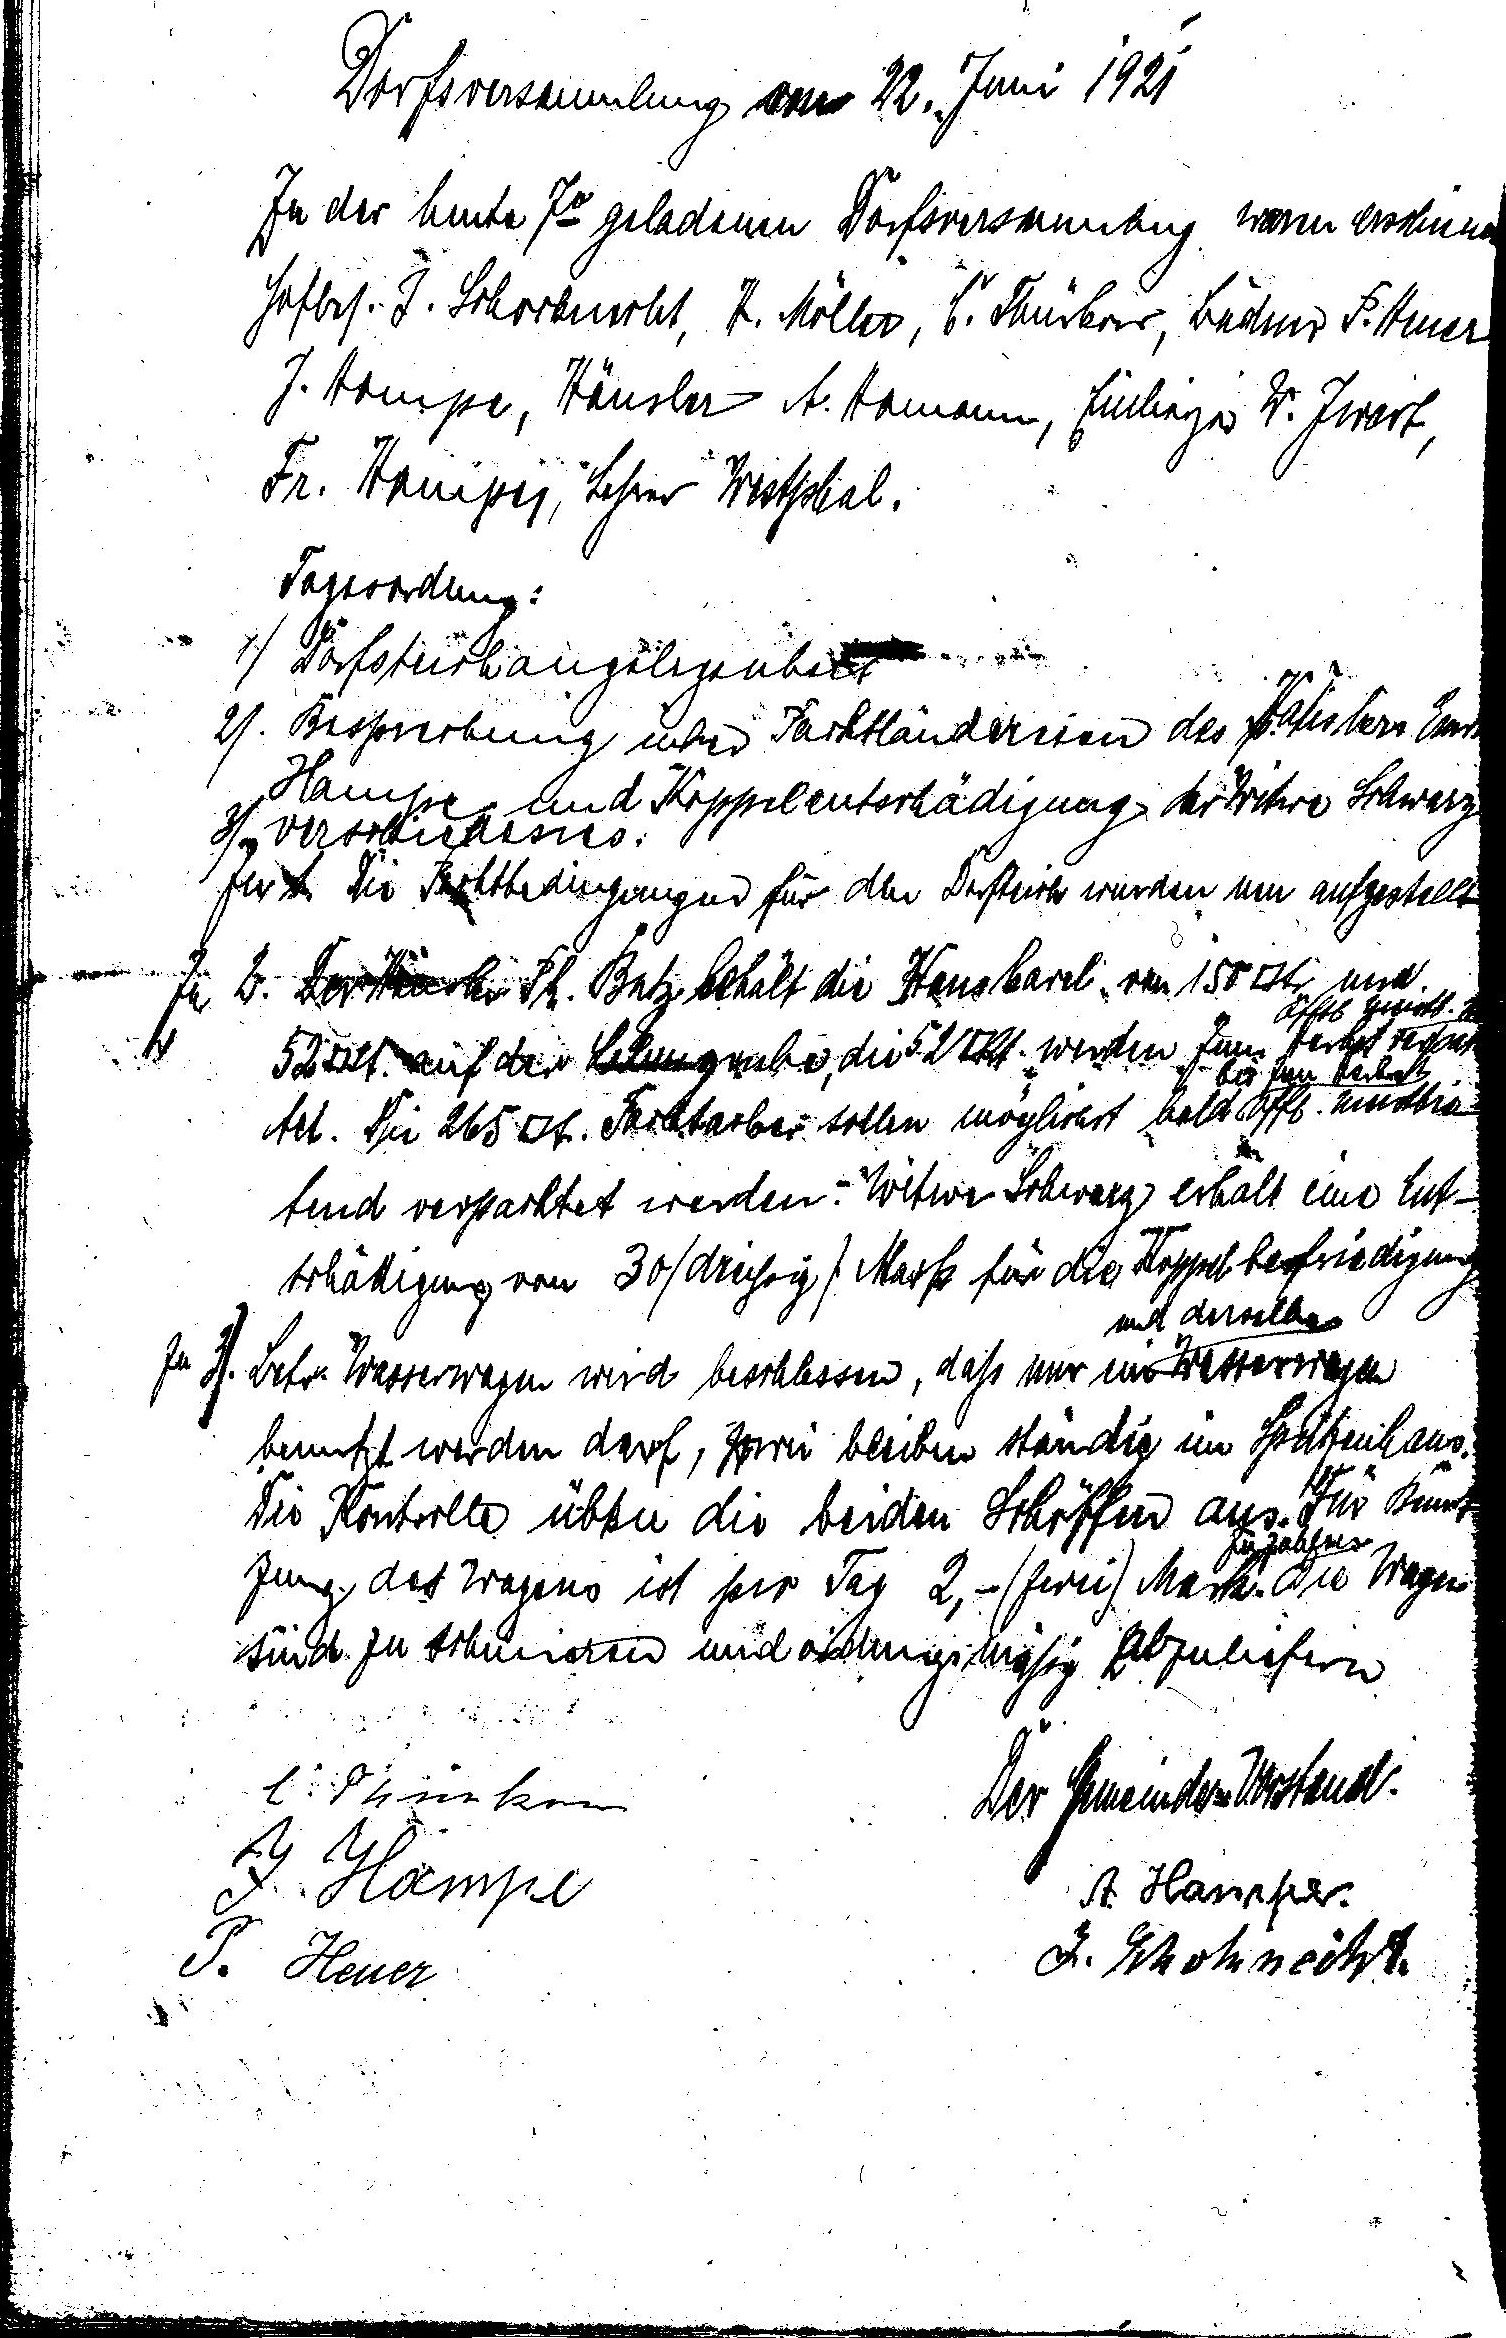 Dorfsversammlung vom 22. Juni 1921
In der heute 7º geladenen Dorfsversammlung waren erschienen
Hofbes. J. Schoknecht, H. Möller, C. Thürkow, Büdner P. Heuer
J. Hampe, Häusler A. Hamann, Einlieger W. Zwart,
Fr. Hampe, Lehrer Westphal.
Tagesordnung:
1/ Dorfsteichangelegenheit
2/. Besprechung über Pachtländereien des Häuslers
Hampe und Koppelentschädigung der Witwe Schwarz
3/. Verschiedenes.
Zu 1. Die Pachtbedingungen für den Dorfteich wurden neu aufgestellt
Zu 2. Der Häusler Ch. Butz behält die Hauskavel von 150 □R. und
öfftl. meistb.
52 □R. auf der Lehmgrube, die 52 □R. werden zum Herbst verpach
bis zum Herbst
tet. Die 265 □R. Pachtacker sollen möglichst bald öfftl. meistbie-
tend verpachtet werden. Witwe Schwarz erhält eine Ent-
schädigung von 30/dreißig/ Mark für die Koppelbefriedigung
und derselbe
Zu 3/. Betr. Wasserwagen wird beschlossen, daß nur ein Wasserwagen
benutzt werden darf, zwei bleiben ständig im Spritzenhaus.
Die Kontrolle üben die beiden Schöffen aus. Für Benut-
zu zahlen
zung des Wagens ist pro Tag 2,-(zwei) Mark. Die Wagen
sind zu schmieren und ordnungsmäßig abzuliefern
C. Thürkow
J. Hampe
P. Heuer
Der Gemeinde-Vorstand.
A. Hampe.
J. Schoknecht.